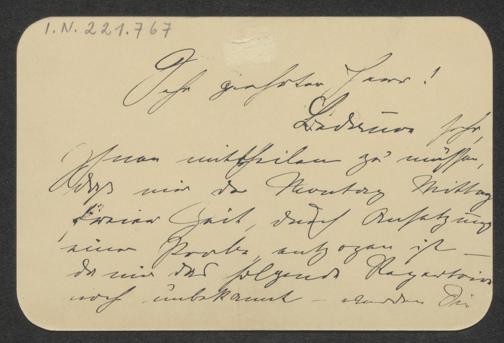 I.N. 221.767
Sehr geehrter Herr!
Bedaure sehr,
Ihnen mittheilen zu müssen,
dass mir die Montag Mittag
freie Zeit, durch Ansetzung
einer Probe, entzogen ist –
da mir das folgende Repertoire
noch unbekannt – werden Sie